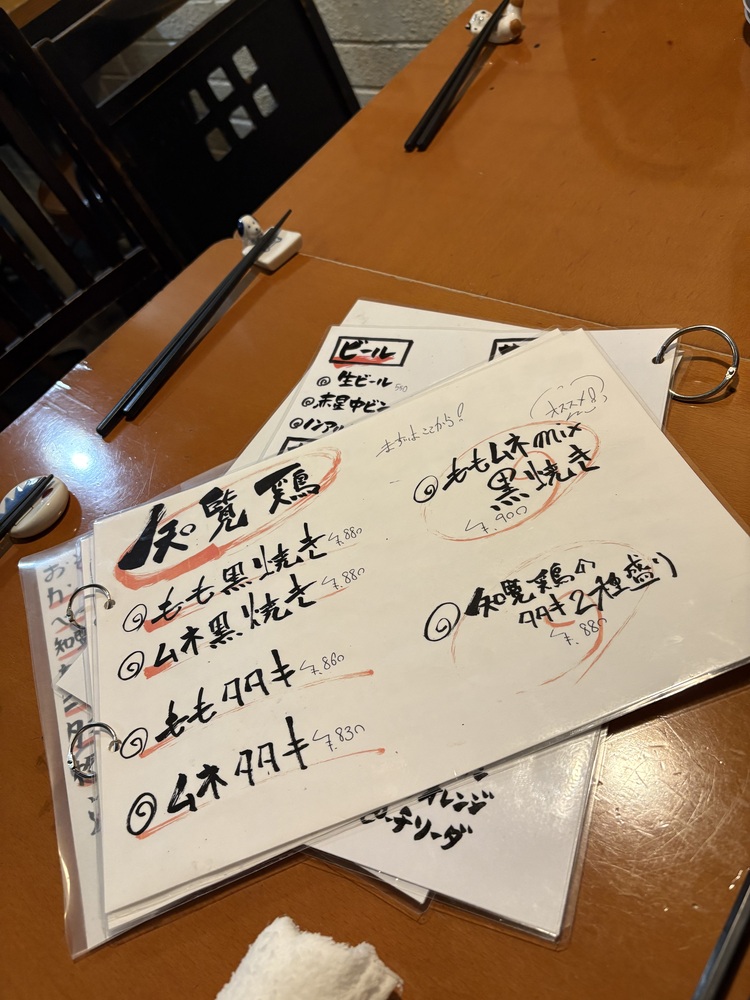 ビール
生ビール
赤星中ビン
知覧鶏
もも黒焼き ¥880
ムネ黒焼き ¥880
ももタタキ ¥860
ムネタタキ ¥830
まずはここから!
オススメ!!
ももムネmix
黒焼き
¥900
知覧鶏の
タタキ2種盛り
¥880
オレンジ